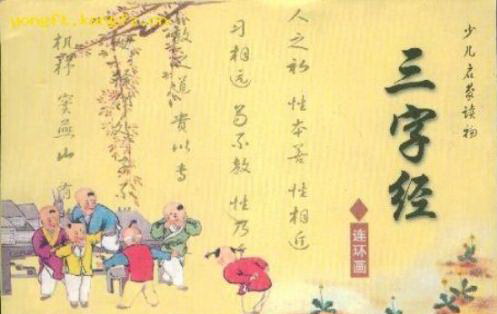 少儿启蒙读物
三字经
连环画
人之初 性本善 性相近
习相远 苟不教 性乃
教之道 贵以专
处 子不
机杼 窦燕山 有